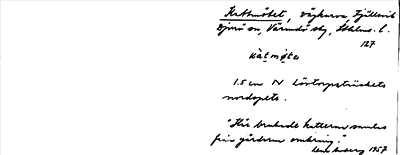 Kattmötet, vägkurva Fjällsvik
Djurö sn, Värmdö sky, Sthlms. l.
127
kàtmøtə
1.5 cm N Löstorpsträskets
nordspets.
"Här brukade katterna samlas
från gårdarna omkring."
1957